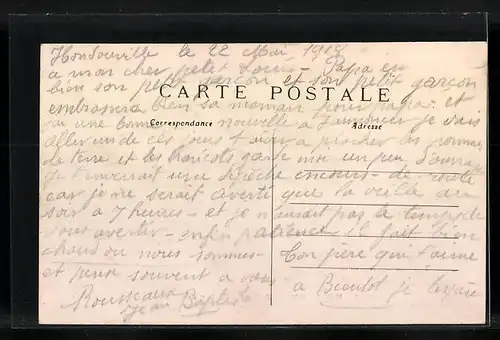 Hondouville le 22 Mai 1918
a mon cher petit Louis - Papa
bien son petit garçon et son petit garçon
CARTE POSTALE
embrassera bien sa maman pour papa - et
une bonne nouvelle a je vais
Correspondance
Adresse
aller un de ces jours a piocher les pommes
de terre et les haricots un peu d'ouvrage
une dépêche en cours de route
car je ne serait averti que la veille au
soir a 7 heures - et je n'aurait pas le temps de
vous avertir - enfin patience il fait bien
chaud ou nous sommes -
et pense souvent a vous
Ton père qui t'aime
a Bientot je l'espère
Rousseaux
Jean Baptiste